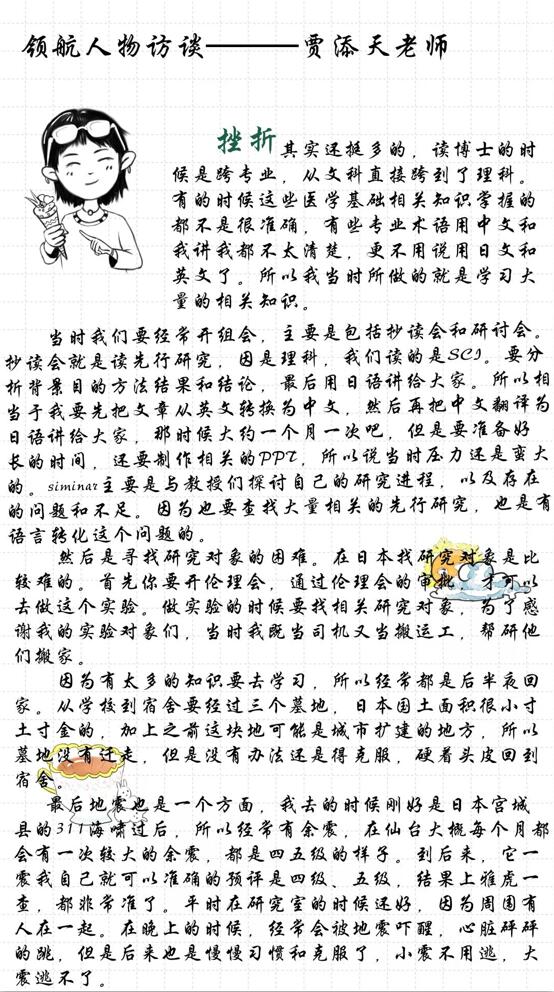 领航人物访谈————贾添天老师
挫折其实还挺多的，读博士的时
候是跨专业，从文科直接跨到了理科。
有的时候这些医学基础相关知识掌握的
都不是很准确，有些专业术语用中文和
我讲我都不太清楚，更不用说用日文和
英文了。所以我当时所做的就是学习大
量的相关知识。
当时我们要经常开组会，主要是包括抄读会和研讨会。
抄读会就是读先行研究，因是理科，我们读的是SCI。要分
析背景目的方法结果和结论，最后用日语讲给大家。所以相
当于我要先把文章从英文转换为中文，然后再把中文翻译为
日语讲给大家，那时候大约一个月一次吧，但是要准备好
长的时间，还要制作相关的PPT，所以说当时压力还是蛮大
的。siminar主要是与教授们探讨自己的研究进程，以及存在
的问题和不足。因为也要查找大量相关的先行研究，也是有
语言转化这个问题的。
然后是寻找研究对象的困难。在日本找研究对象是比
较难的。首先你要开伦理会，通过伦理会的审批，才可以
去做这个实验。做实验的时候要找相关研究对象，为了感
谢我的实验对象们，当时我既当司机又当搬运工，帮研他
们搬家。
因为有太多的知识要去学习，所以经常都是后半夜回
家。从学校到宿舍要经过三个墓地，日本国土面积很小寸
土寸金的，加上之前这块地可能是城市扩建的地方，所以
墓地没有迁走，但是没有办法还是得克服，硬着头皮回到
宿舍。
最后地震也是一个方面，我去的时候刚好是日本宫城
县的311海啸过后，所以经常有余震，在仙台大概每个月都
会有一次较大的余震，都是四五级的样子。到后来，它一
震我自己就可以准确的预评是四级、五级，结果上雅虎一
查，都非常准了。平时在研究室的时候还好，因为周围有
人在一起。在晚上的时候，经常会被地震吓醒，心脏砰砰
的跳，但是后来也是慢慢习惯和克服了，小震不用逃，大
震逃不了。